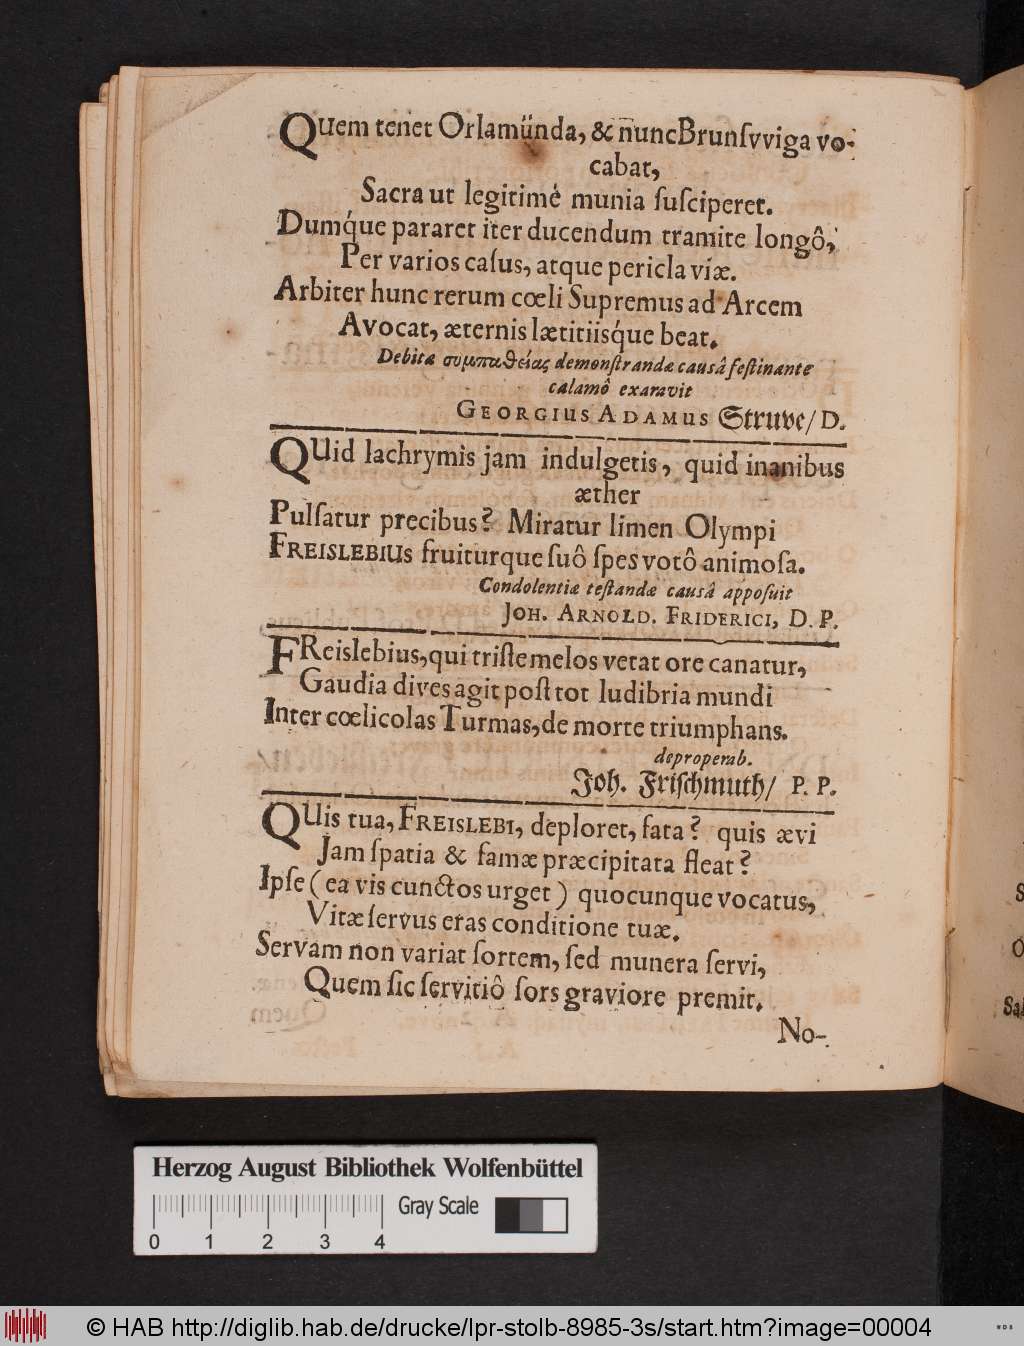 QUem tenet Orlamünda, & nunc Brunſvviga vo-
cabat,
Sacra ut legitimé munia ſuſciperet.
Dumq́ue pararet iter ducendum tramite longô,
Per varios caſus, atque pericla viæ.
Arbiter hunc rerum cœli Supremus ad Arcem
Avocat, æternis lætitiisq́ue beat.
Debitæ συμπαθείας demonſtrandæ causâ feſtinante
calamô exaravit
GEORGIUS ADAMUS Struve/ D.
QUid lachrymis jam indulgetis, quid inanibus
æther
Pulſatur precibus? Miratur limen Olympi
FREISLEBIUs fruiturque ſuô ſpes votô animoſa.
Condolentiæ teſtandæ causâ appoſuit
JOH. ARNOLD. FRIDERICI, D. P.
FReislebius, qui triſte melos vetat ore canatur,
Gaudia dives agit poſt tot ludibria mundi
Inter cœlicolas Turmas, de morte triumphans.
deproperab.
Joh. Friſchmuth/ P. P.
QUis tua, FREISLEBI, deploret, fata? quis ævi
Jam ſpatia & famæ præcipitata fleat?
Ipſe (ea vis cunctos urget) quocunque vocatus,
Vitæ ſervus eras conditione tuæ.
Servam non variat ſortem, ſed munera ſervi,
Quem ſic ſervitiô ſors graviore premit.
No-
Herzog August Bibliothek Wolfenbüttel
Gray Scale
0 1 2 3 4
© HAB http://diglib.hab.de/drucke/lpr-stolb-8985-3s/start.htm?image=00004